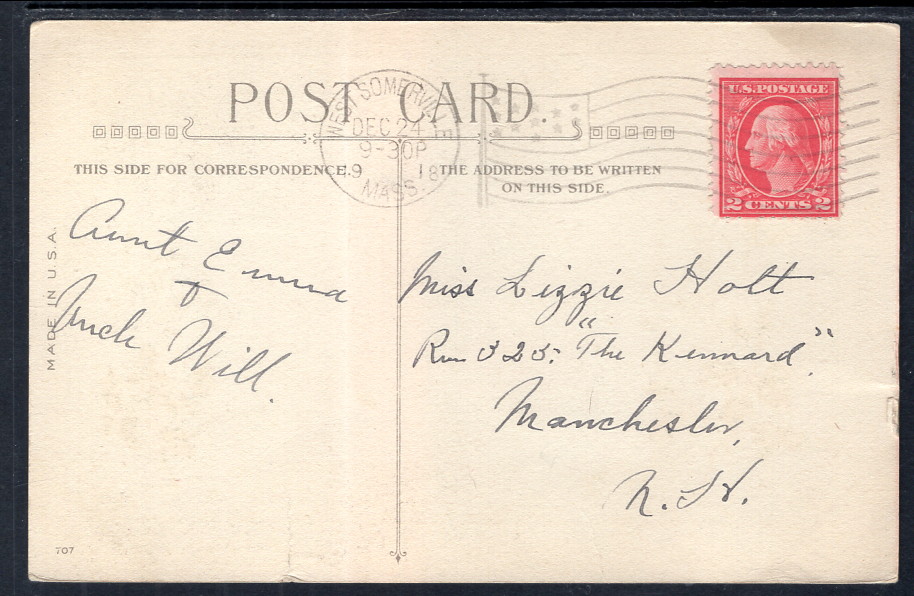 POST CARD.
WEST SOMERVILLE
DEC 24
9-30P
19 18
MASS.
U.S. POSTAGE
2 CENTS 2
THIS SIDE FOR CORRESPONDENCE.
THE ADDRESS TO BE WRITTEN
ON THIS SIDE.
MADE IN U.S.A.
Aunt Emma
+
Uncle Will.
Miss Lizzie Holt
Rm 325. "The Kennard".
Manchester,
N. H.
707